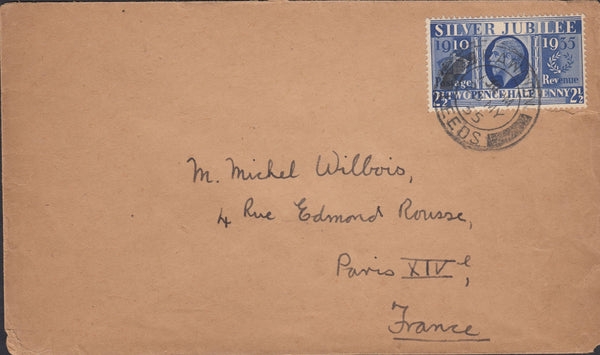 SILVER JUBILEE
1910 1935
Postage Revenue
2½ TWOPENCE HALFPENNY 2½
MY
35
LEEDS
M. Michel Wilbois,
4 Rue Edmond Rousse,
Paris XIVe,
France